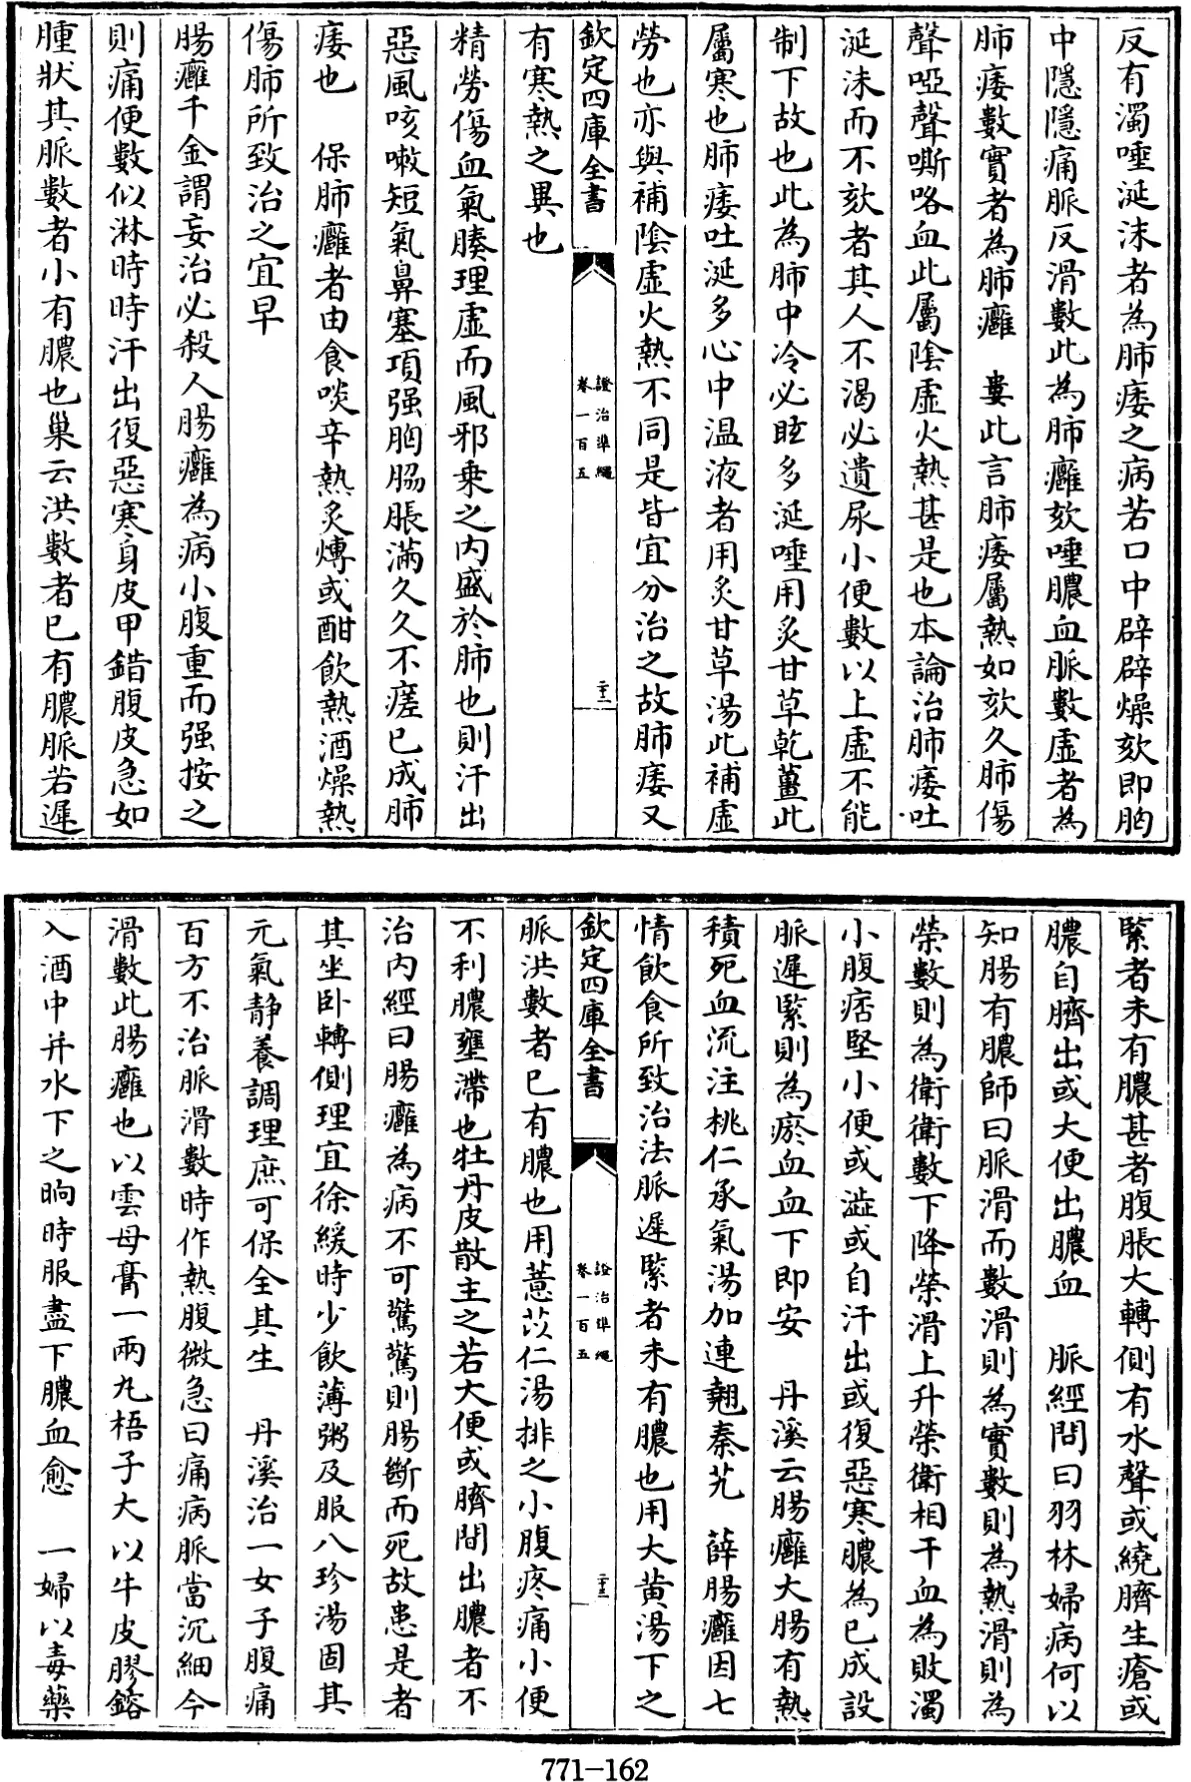 反有濁唾涎沫者為肺痿之病若口中辟辟燥欬即胸
中隱隱痛脈反滑數此為肺癰欬唾膿血脈數虛者為
肺痿數實者為肺癰　婁此言肺痿屬熱如欬久肺傷
聲啞聲嘶咯血此屬陰虛火熱甚是也本論治肺痿吐
涎沫而不欬者其人不渴必遺尿小便數以上虛不能
制下故也此為肺中冷必眩多涎唾用炙甘草乾薑此
屬寒也肺痿吐涎多心中温液者用炙甘草湯此補虛
勞也亦與補陰虛火熱不同是皆宜分治之故肺痿又
欽定四庫全書
證治準繩
卷一百五
二十二
有寒熱之異也
精勞傷血氣腠理虛而風邪乗之内盛於肺也則汗出
惡風咳嗽短氣鼻塞項强胸脇脹滿久久不瘥已成肺
痿也　保肺癰者由食啖辛熱炙煿或酣飲熱酒燥熱
傷肺所致治之宜早
腸癰千金謂妄治必殺人腸癰為病小腹重而强按之
則痛便數似淋時時汗出復惡寒身皮甲錯腹皮急如
腫狀其脈數者小有膿也巢云洪數者已有膿脈若遲
緊者未有膿甚者腹脹大轉側有水聲或繞臍生瘡或
膿自臍出或大便出膿血　脈經問曰羽林婦病何以
知腸有膿師曰脈滑而數滑則為實數則為熱滑則為
榮數則為衛衛數下降榮滑上升榮衛相干血為敗濁
小腹痞堅小便或澁或自汗出或復惡寒膿為已成設
脈遲緊則為瘀血血下即安　丹溪云腸癰大腸有熱
積死血流注桃仁承氣湯加連翹秦艽　薛腸癰因七
情飲食所致治法脈遲緊者未有膿也用大黄湯下之
欽定四庫全書
證治準繩
卷一百五
二十三
脈洪數者已有膿也用薏苡仁湯排之小腹疼痛小便
不利膿壅滯也牡丹皮散主之若大便或臍間出膿者不
治内經曰腸癰為病不可驚驚則腸斷而死故患是者
其坐卧轉側理宜徐緩時少飲薄粥及服八珍湯固其
元氣靜養調理庶可保全其生　丹溪治一女子腹痛
百方不治脈滑數時作熱腹微急曰痛病脈當沉細今
滑數此腸癰也以雲母膏一兩丸梧子大以牛皮膠鎔
入酒中并水下之晌時服盡下膿血愈　一婦以毒藥
771-162